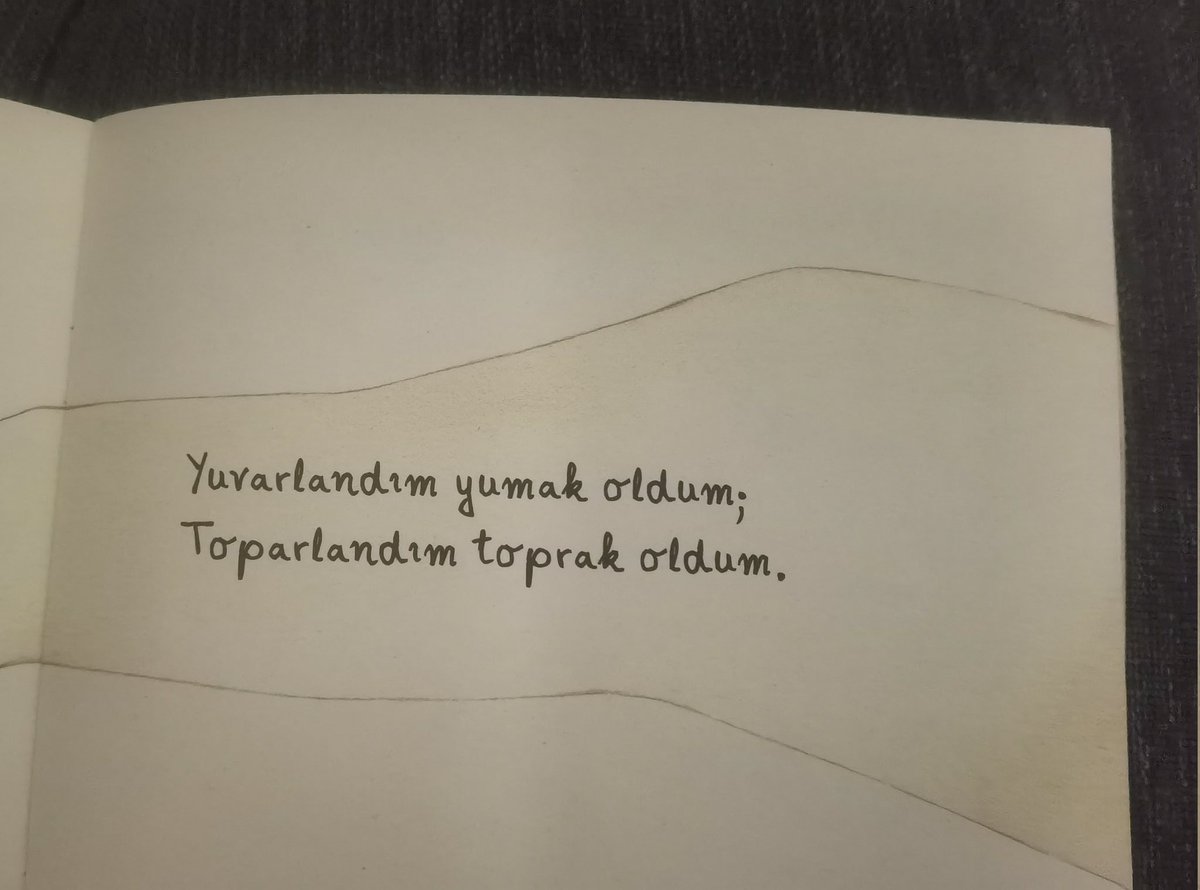 Yuvarlandım yumak oldum;
Toparlandım toprak oldum.